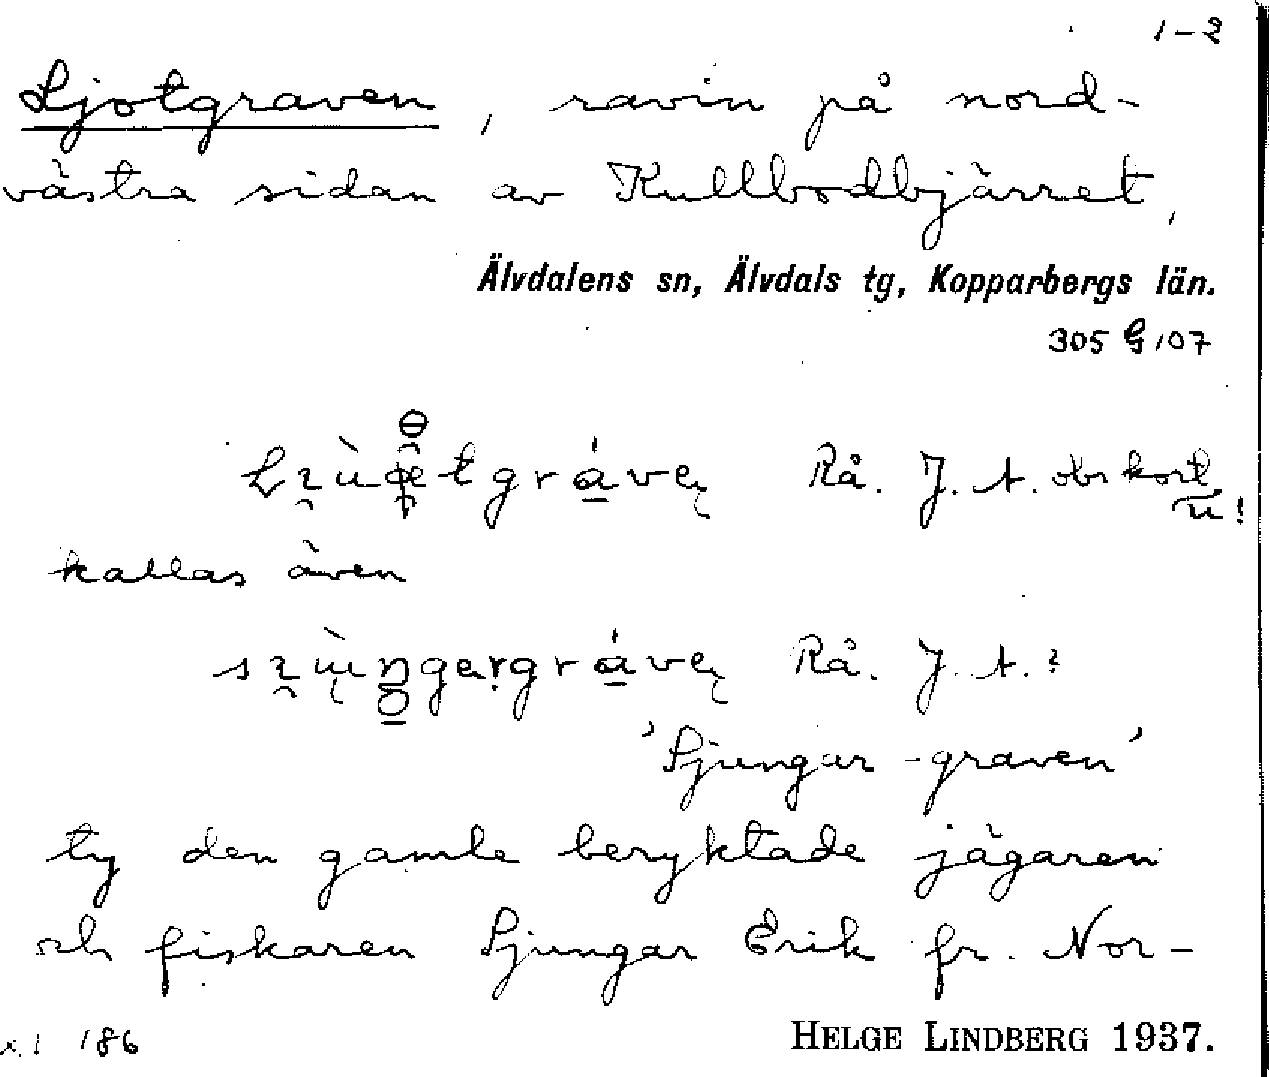 1-2
Ljotgraven, ravin på nord-
västra sidan av Kullbodbjärret,
Älvdalens sn, Älvdals tg, Kopparbergs län.
305 G 107
Rå. J. A. obs kort
ū!
kallas även
Rå. J. A. ?
'Sjungar-graven'
ty den gamle beryktade jägaren
och fiskaren Sjungar Erik fr. Nor-
186
HELGE LINDBERG 1937.